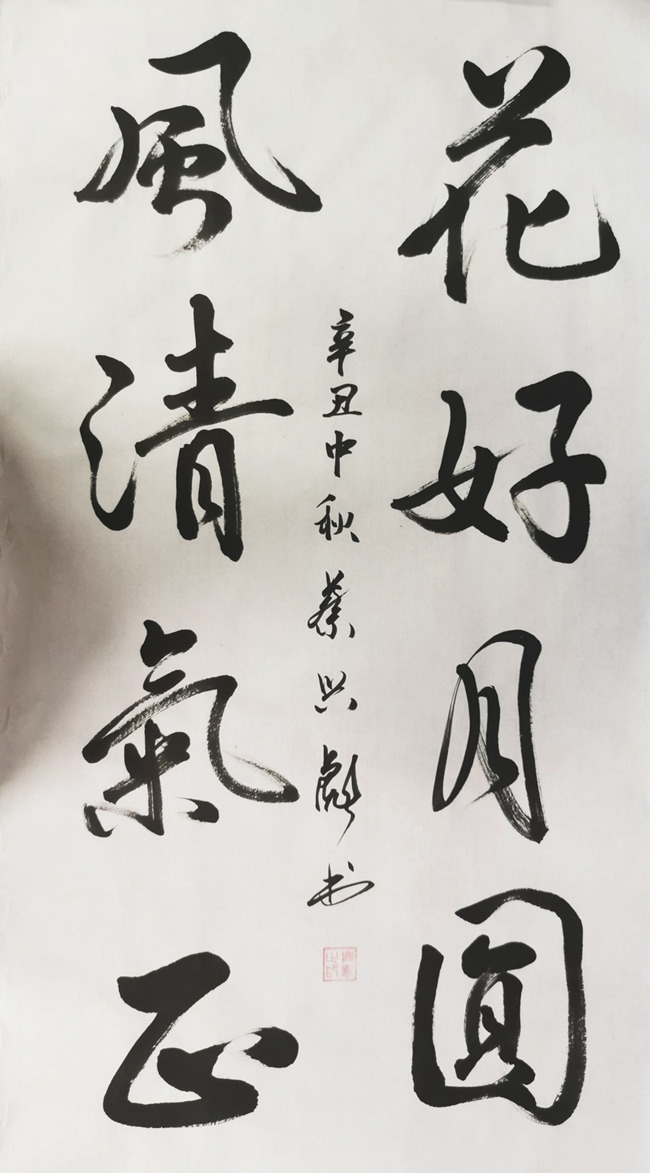 花好月圓
風清氣正
辛丑中秋蔡興彪书